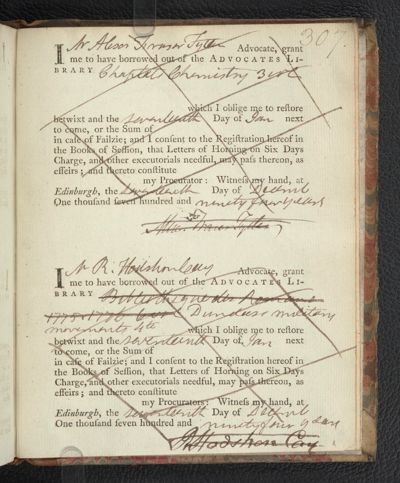 307
I Mr Alexr Fraser Tytler Advocate, grant
me to have borrowed out of the ADVOCATES LI-
BRARY Chaptels Chemistry 3 vol
which I oblige me to reſtore
betwixt and the seventeenth Day of Jan next
to come, or the Sum of
in caſe of Failzie; and I conſent to the Regiſtration hereof in
the Books of Seſſion, that Letters of Horning on Six Days
Charge, and other executorials needful, may paſs thereon, as
effeirs; and thereto conſtitute
my Procurator: Witneſs my hand, at
Edinburgh, the seventeenth Day of Decemb
One thouſand ſeven hundred and ninety four years
Alexr Fraser Tytler
I Mr R. Hodshon Cay Advocate, grant
me to have borrowed out of the ADVOCATES LI-
BRARY Bibliotheque des Romans
1775.1776 Dundass military
movements 4to which I oblige me to reſtore
betwixt and the seventeenth Day of Jan next
to come, or the Sum of
in caſe of Failzie; and I conſent to the Regiſtration hereof in
the Books of Seſſion, that Letters of Horning on Six Days
Charge, and other executorials needful, may paſs thereon, as
effeirs; and thereto conſtitute
my Procurators: Witneſs my hand, at
Edinburgh, the seventeenth Day of Decemb
One thouſand ſeven hundred and ninety four years
R Hodshon Cay